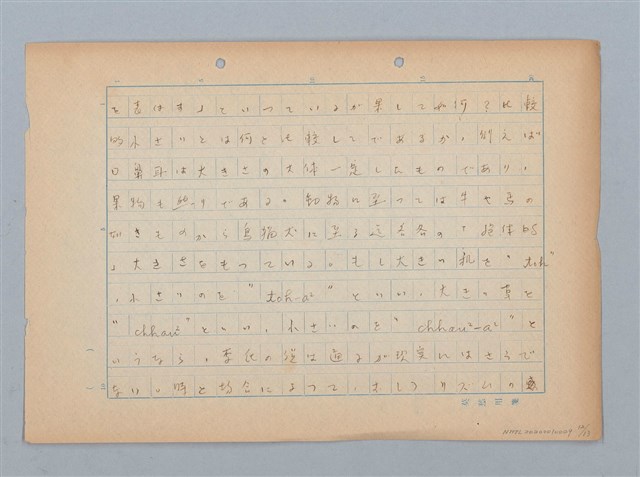 を表はすといっているが果して如何？比較
的小さいとは何と比較してであるか，例えば
口鼻耳は大きさの大体一定したものであり，
果物も然りである。動物に至っては牛や馬の
如きものから鳥猫犬に至る迄各各の，絶体的
な大きさをもっている。もし大きい机を"toh"
，小さいのを"toh-a²"といい，大きい草を
"chhau²"といい，小さいのを"chhau²-a²"と
いうなら，李氏の説は通るが現実にはさうで
ない。時と場合によって，むしろリズムの